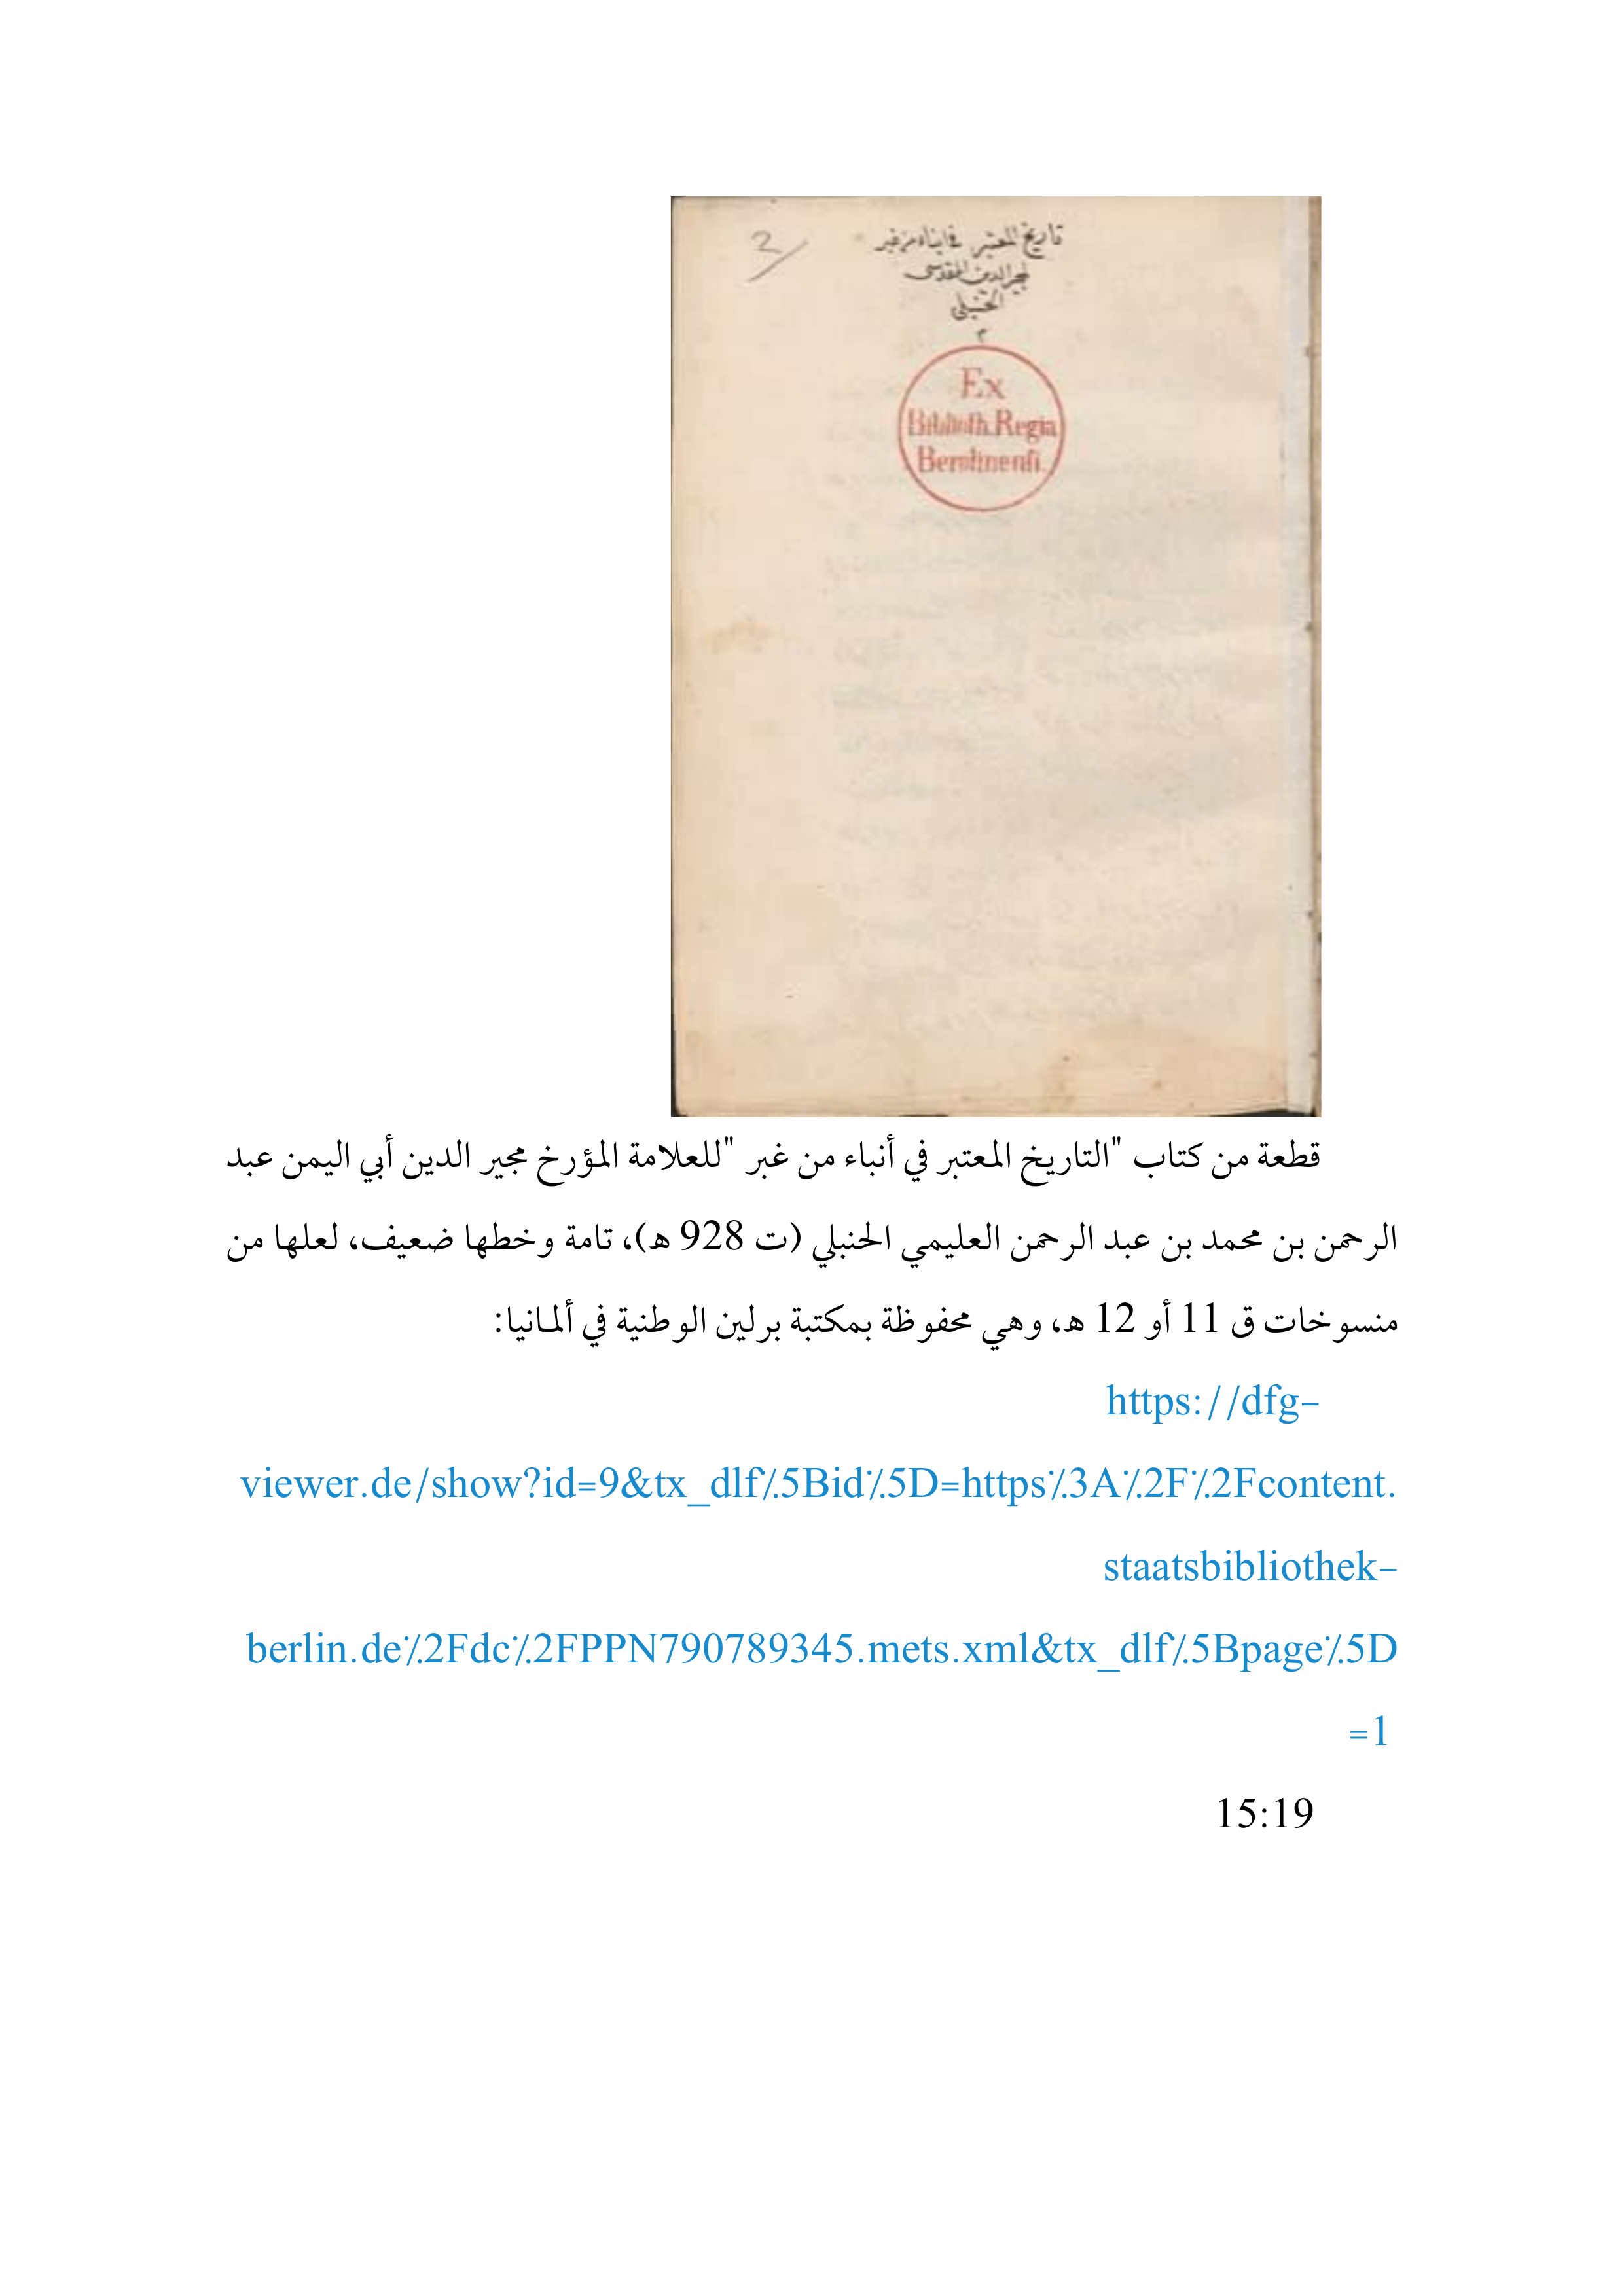 تاريخ المعتبر في انباء من غبر
لمجير الدين المقدسي
الحنبلي
2
Ex
Biblioth. Regia
Berolinensi.
قطعة من كتاب "التاريخ المعتبر في أنباء من غبر "للعلامة المؤرخ مجير الدين أبي اليمن عبد
الرحمن بن محمد بن عبد الرحمن العليمي الحنبلي (ت 928 ه)، تامة وخطها ضعيف، لعلها من
منسوخات ق 11 أو 12 ه، وهي محفوظة بمكتبة برلين الوطنية في ألمانيا:
https://dfg-
viewer.de/show?id=9&tx_dlf%5Bid%5D=https%3A%2F%2Fcontent.
staatsbibliothek-
berlin.de%2Fdc%2FPPN790789345.mets.xml&tx_dlf%5Bpage%5D
=1
15:19